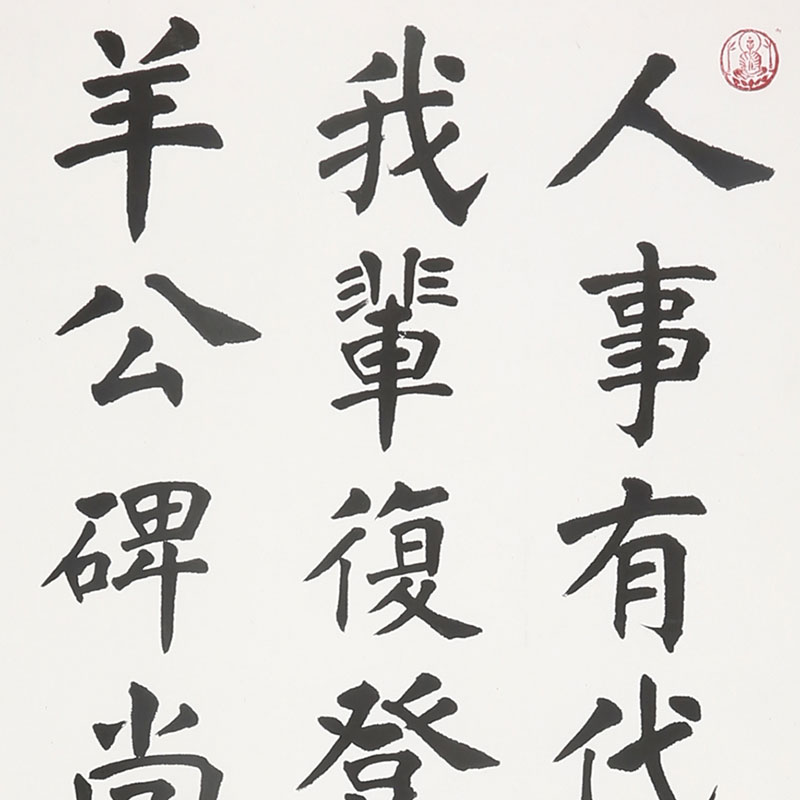 人事有代
我輩復登
羊公碑尚